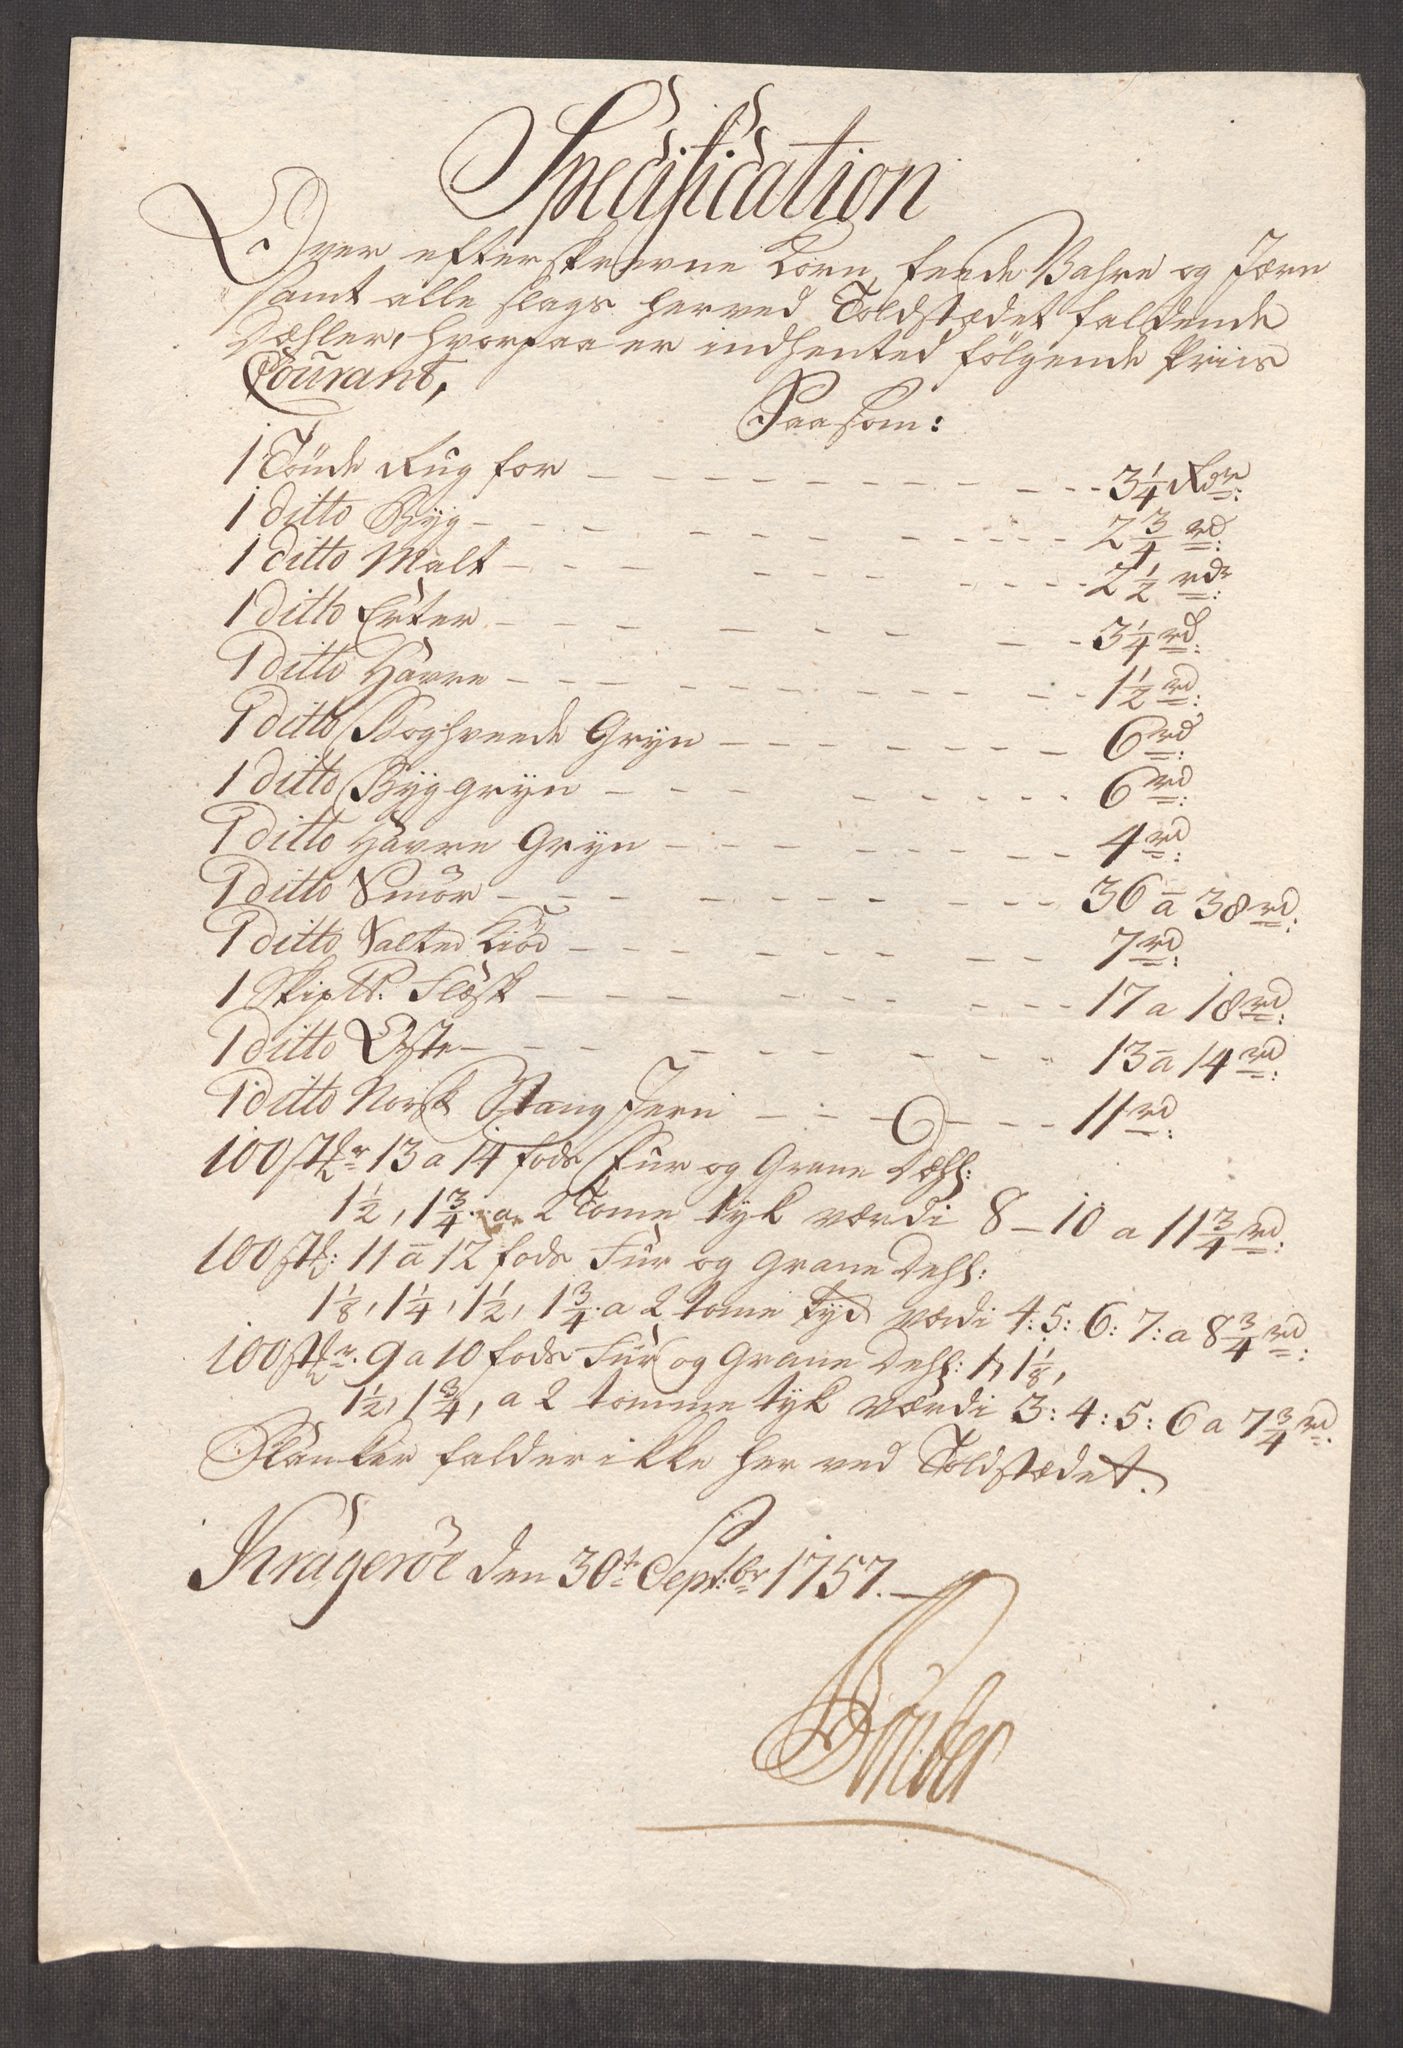 Specification
Over efterskrevne Korn, feede Vahre og Jærn
samt alle slags herved Toldstædet faldende
Dæhler, hvorpaa er indhented følgende Priis
Courant,
Saasom:
1 Tönde Rug for - - - 3 1/4 Rdr:
1 ditto Byg - - - 2 3/4 rd:
1 ditto Malt - - - 2 1/2 rdr:
1 ditto Erter - - - 3 1/4 rd:
1 ditto Havre - - - 1 1/2 rd:
1 ditto Boghveede Gryn - - - 6 rd:
1 ditto Byggryn - - - 6 rd:
1 ditto Havre Gryn - - - 4 rd:
1 ditto Smör - - - 36 a 38 rd:
1 ditto Salted Kiöd - - - 7 rd:
1 Skip℔. Flæsk - - - 17 a 18 rd:
1 ditto Oste - - - 13 a 14 rd:
1 ditto Norsk Stang Jern - - - 11 rd:
100 stkr 13 a 14 fods Fur og Grane Dæhl:
1 1/2, 1 3/4 a 2 Tome tyk værdi 8 - 10 a 11 3/4 rd:
100 stk: 11 a 12 fods Fur og Grane Dehl:
1 1/8, 1 1/4, 1 1/2, 1 3/4 a 2 tome tyk værdi 4: 5: 6: 7: a 8 3/4 rd:
100 stkr. 9 a 10 fods Fur og Grane Dehl: 1, 1 1/8,
1 1/2, 1 3/4, a 2 tomme tyk værdi 3: 4: 5: 6 a 7 3/4 rd:
Planker falder ikke her ved Toldstædet.
Krageröe den 30te Septbr 1757.